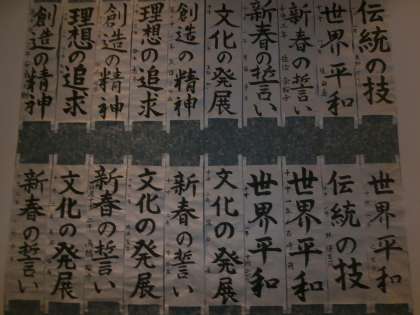 伝統の技
世界平和
新春の誓い
新春の誓い
文化の発展
創造の精神
理想の追求
創造の精神
理想の追求
創造の精神
世界平和
伝統の技
世界平和
世界平和
文化の発展
新春の誓い
文化の発展
新春の誓い
文化の発展
新春の誓い